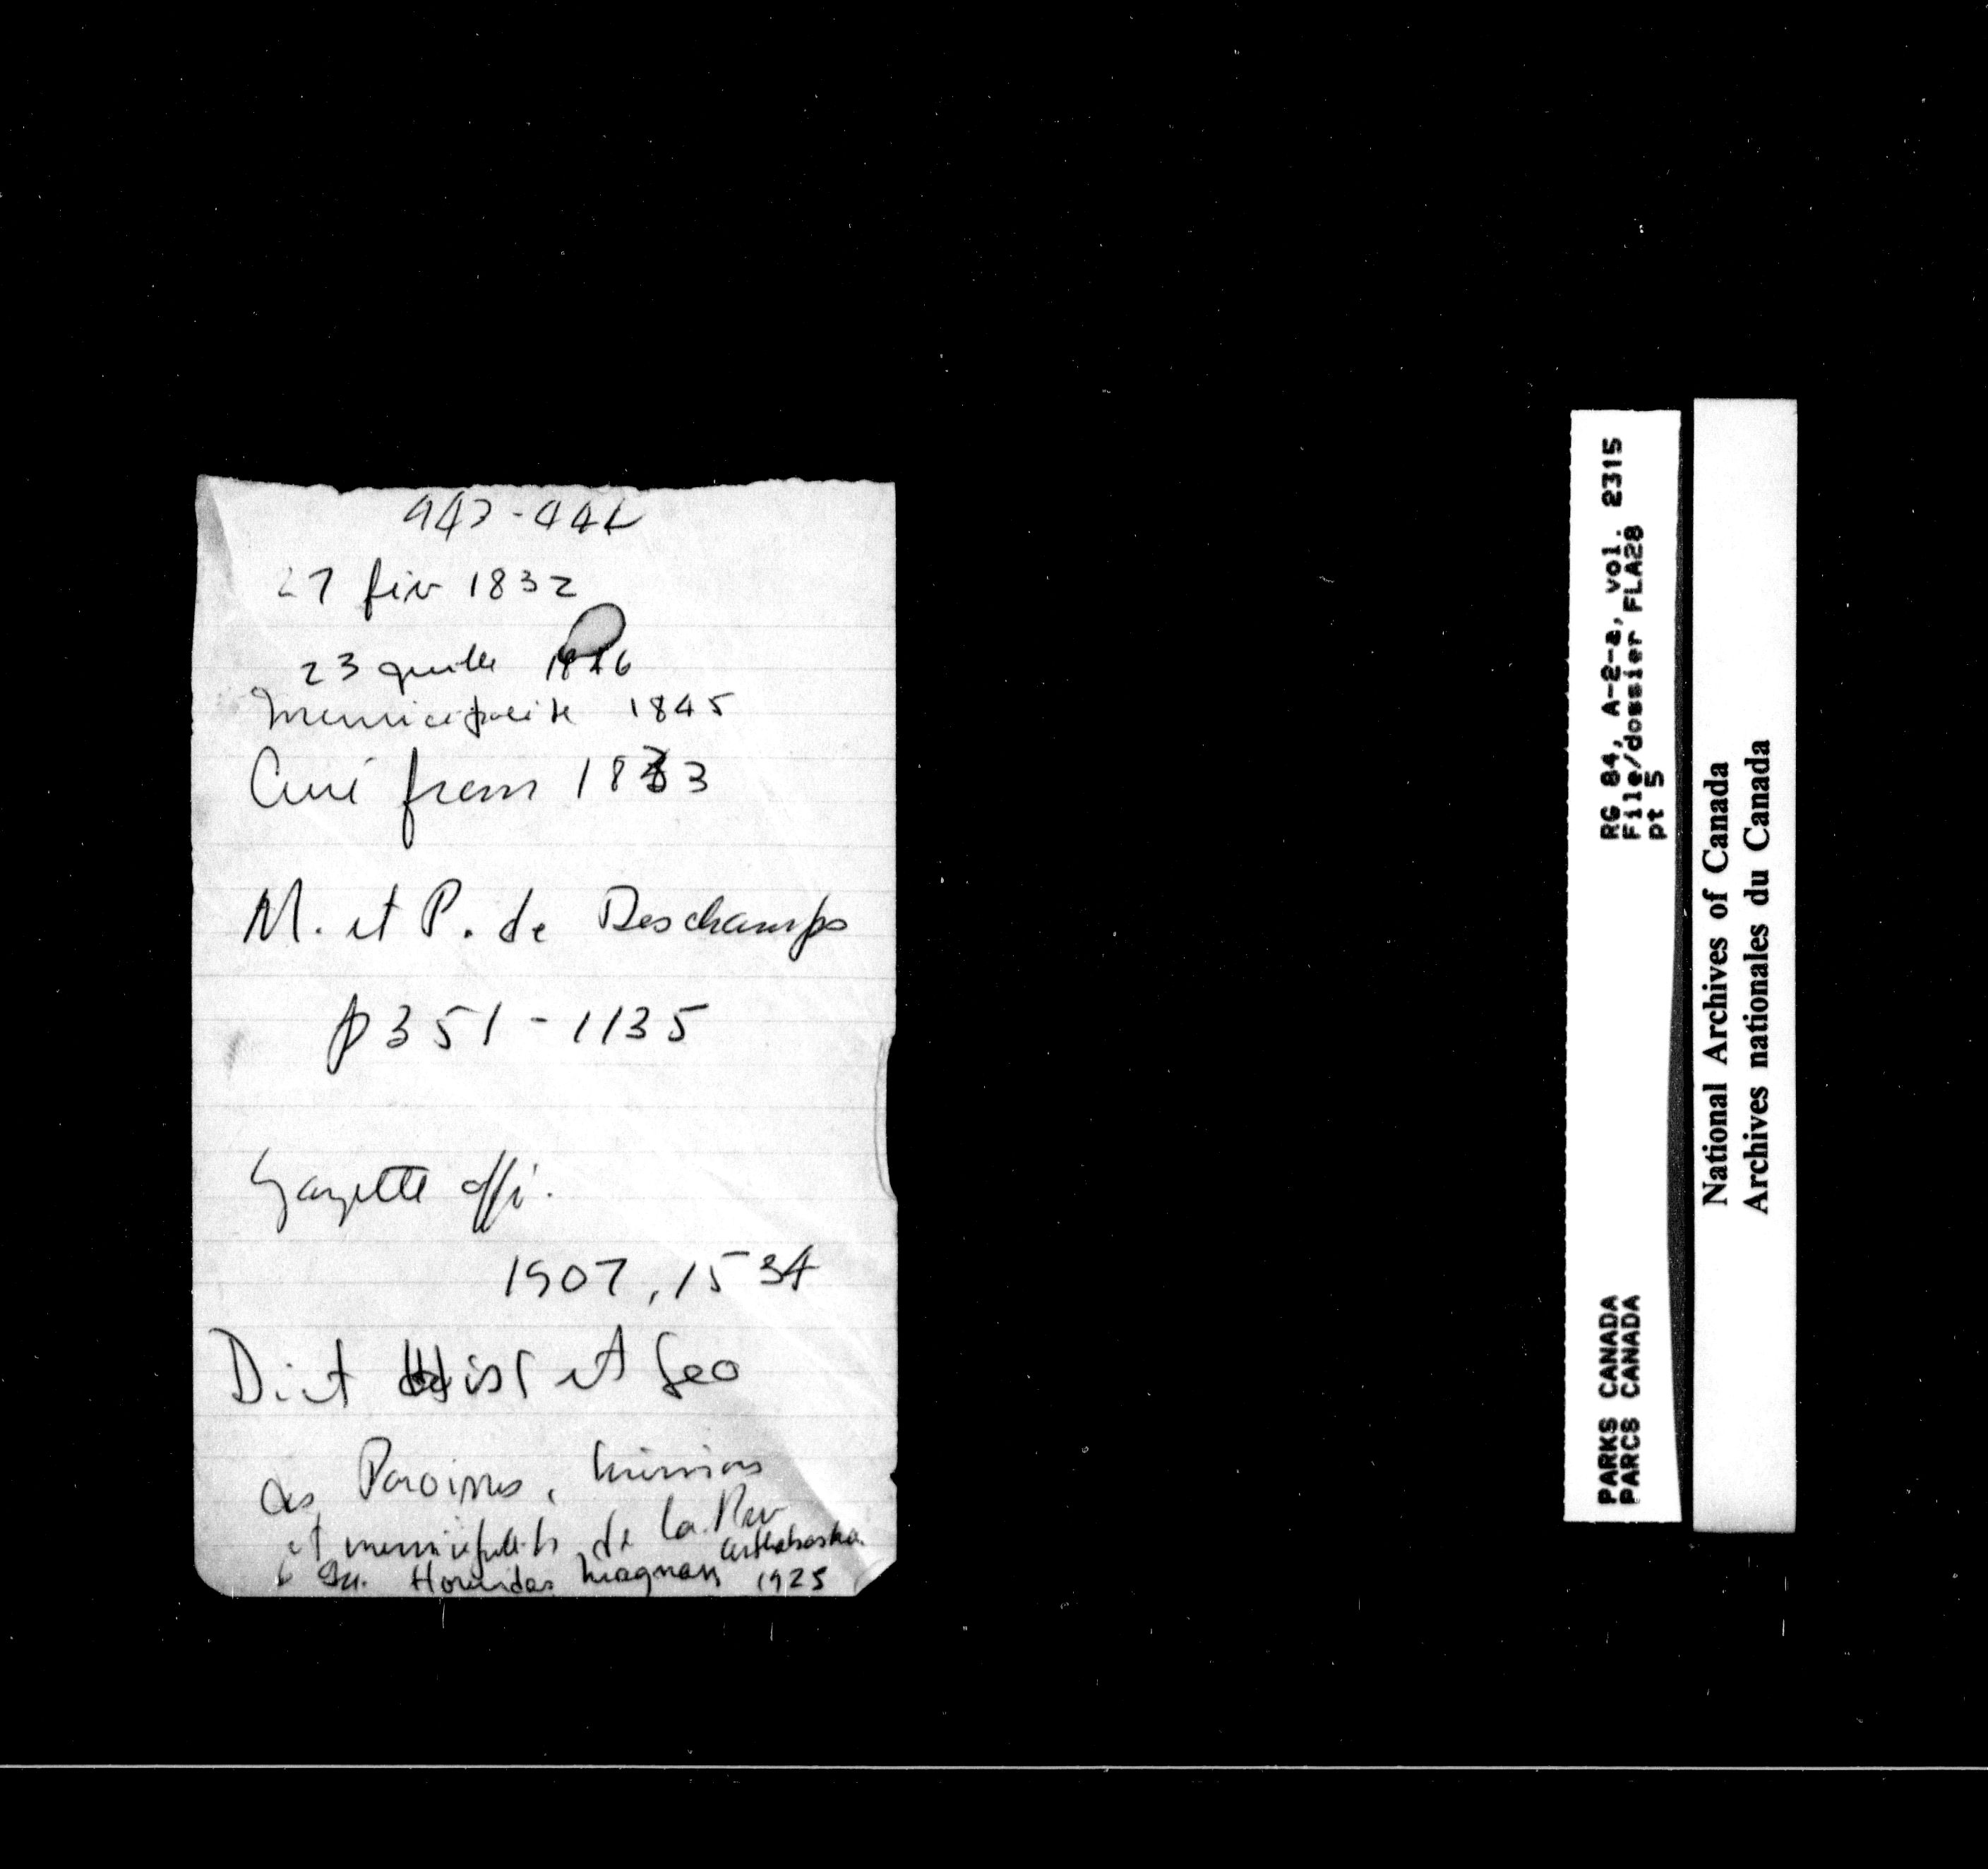 27 fév 1832
23 juillet
Municipalité 1845
Curé from 1833
M. et P. de Deschamps
p 351 - 1135
Gazette offi.
1907, 1534
Dict Hist et Geo
des Paroisses, missions
et municipalités de la Prov
Arthabaska
Hormidas Magnan 1925
RG 84, A-2-a, vol. 2315
File/dossier FLA28
pt 5
PARKS CANADA
PARCS CANADA
National Archives of Canada
Archives nationales du Canada